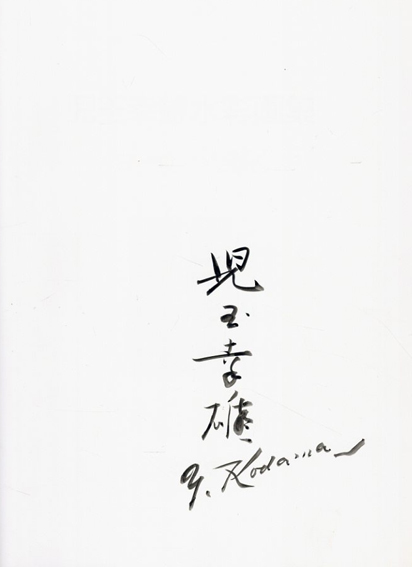 児玉幸雄
Y. Kodama